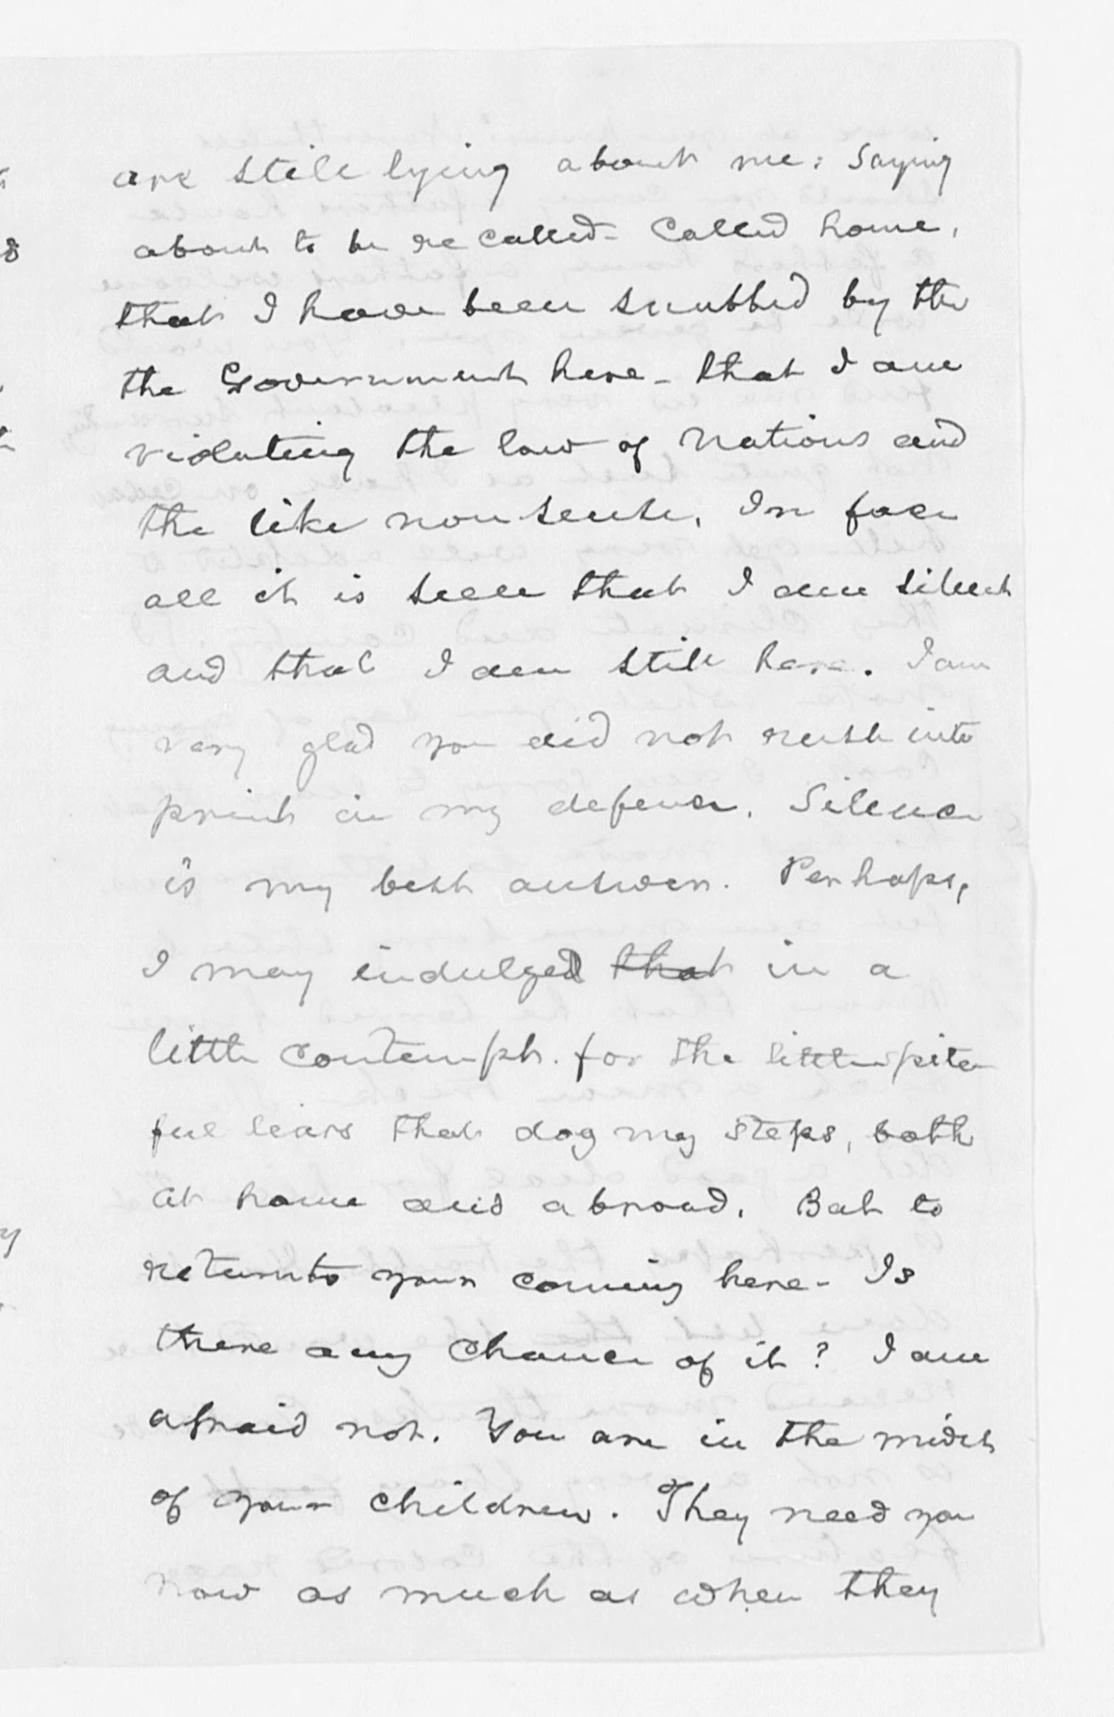 are still lying about me: Saying
about to be recalled - Called home,
that I have been snubbed by the
the Government here - that I am
violating the law of Nations and
the like nonsense. In face
all it is seen that I am silent
and that I am still here. I am
very glad you did not rush into
print in my defence. Silence
is my best answer. Perhaps,
I may indulged that in a
little contempt. for the little spite
ful liars that dog my steps, both
at home and abroad. But to
return to your coming here - Is
there any chance of it? I am
afraid not. You are in the midst
of your children. They need you
now as much as when they